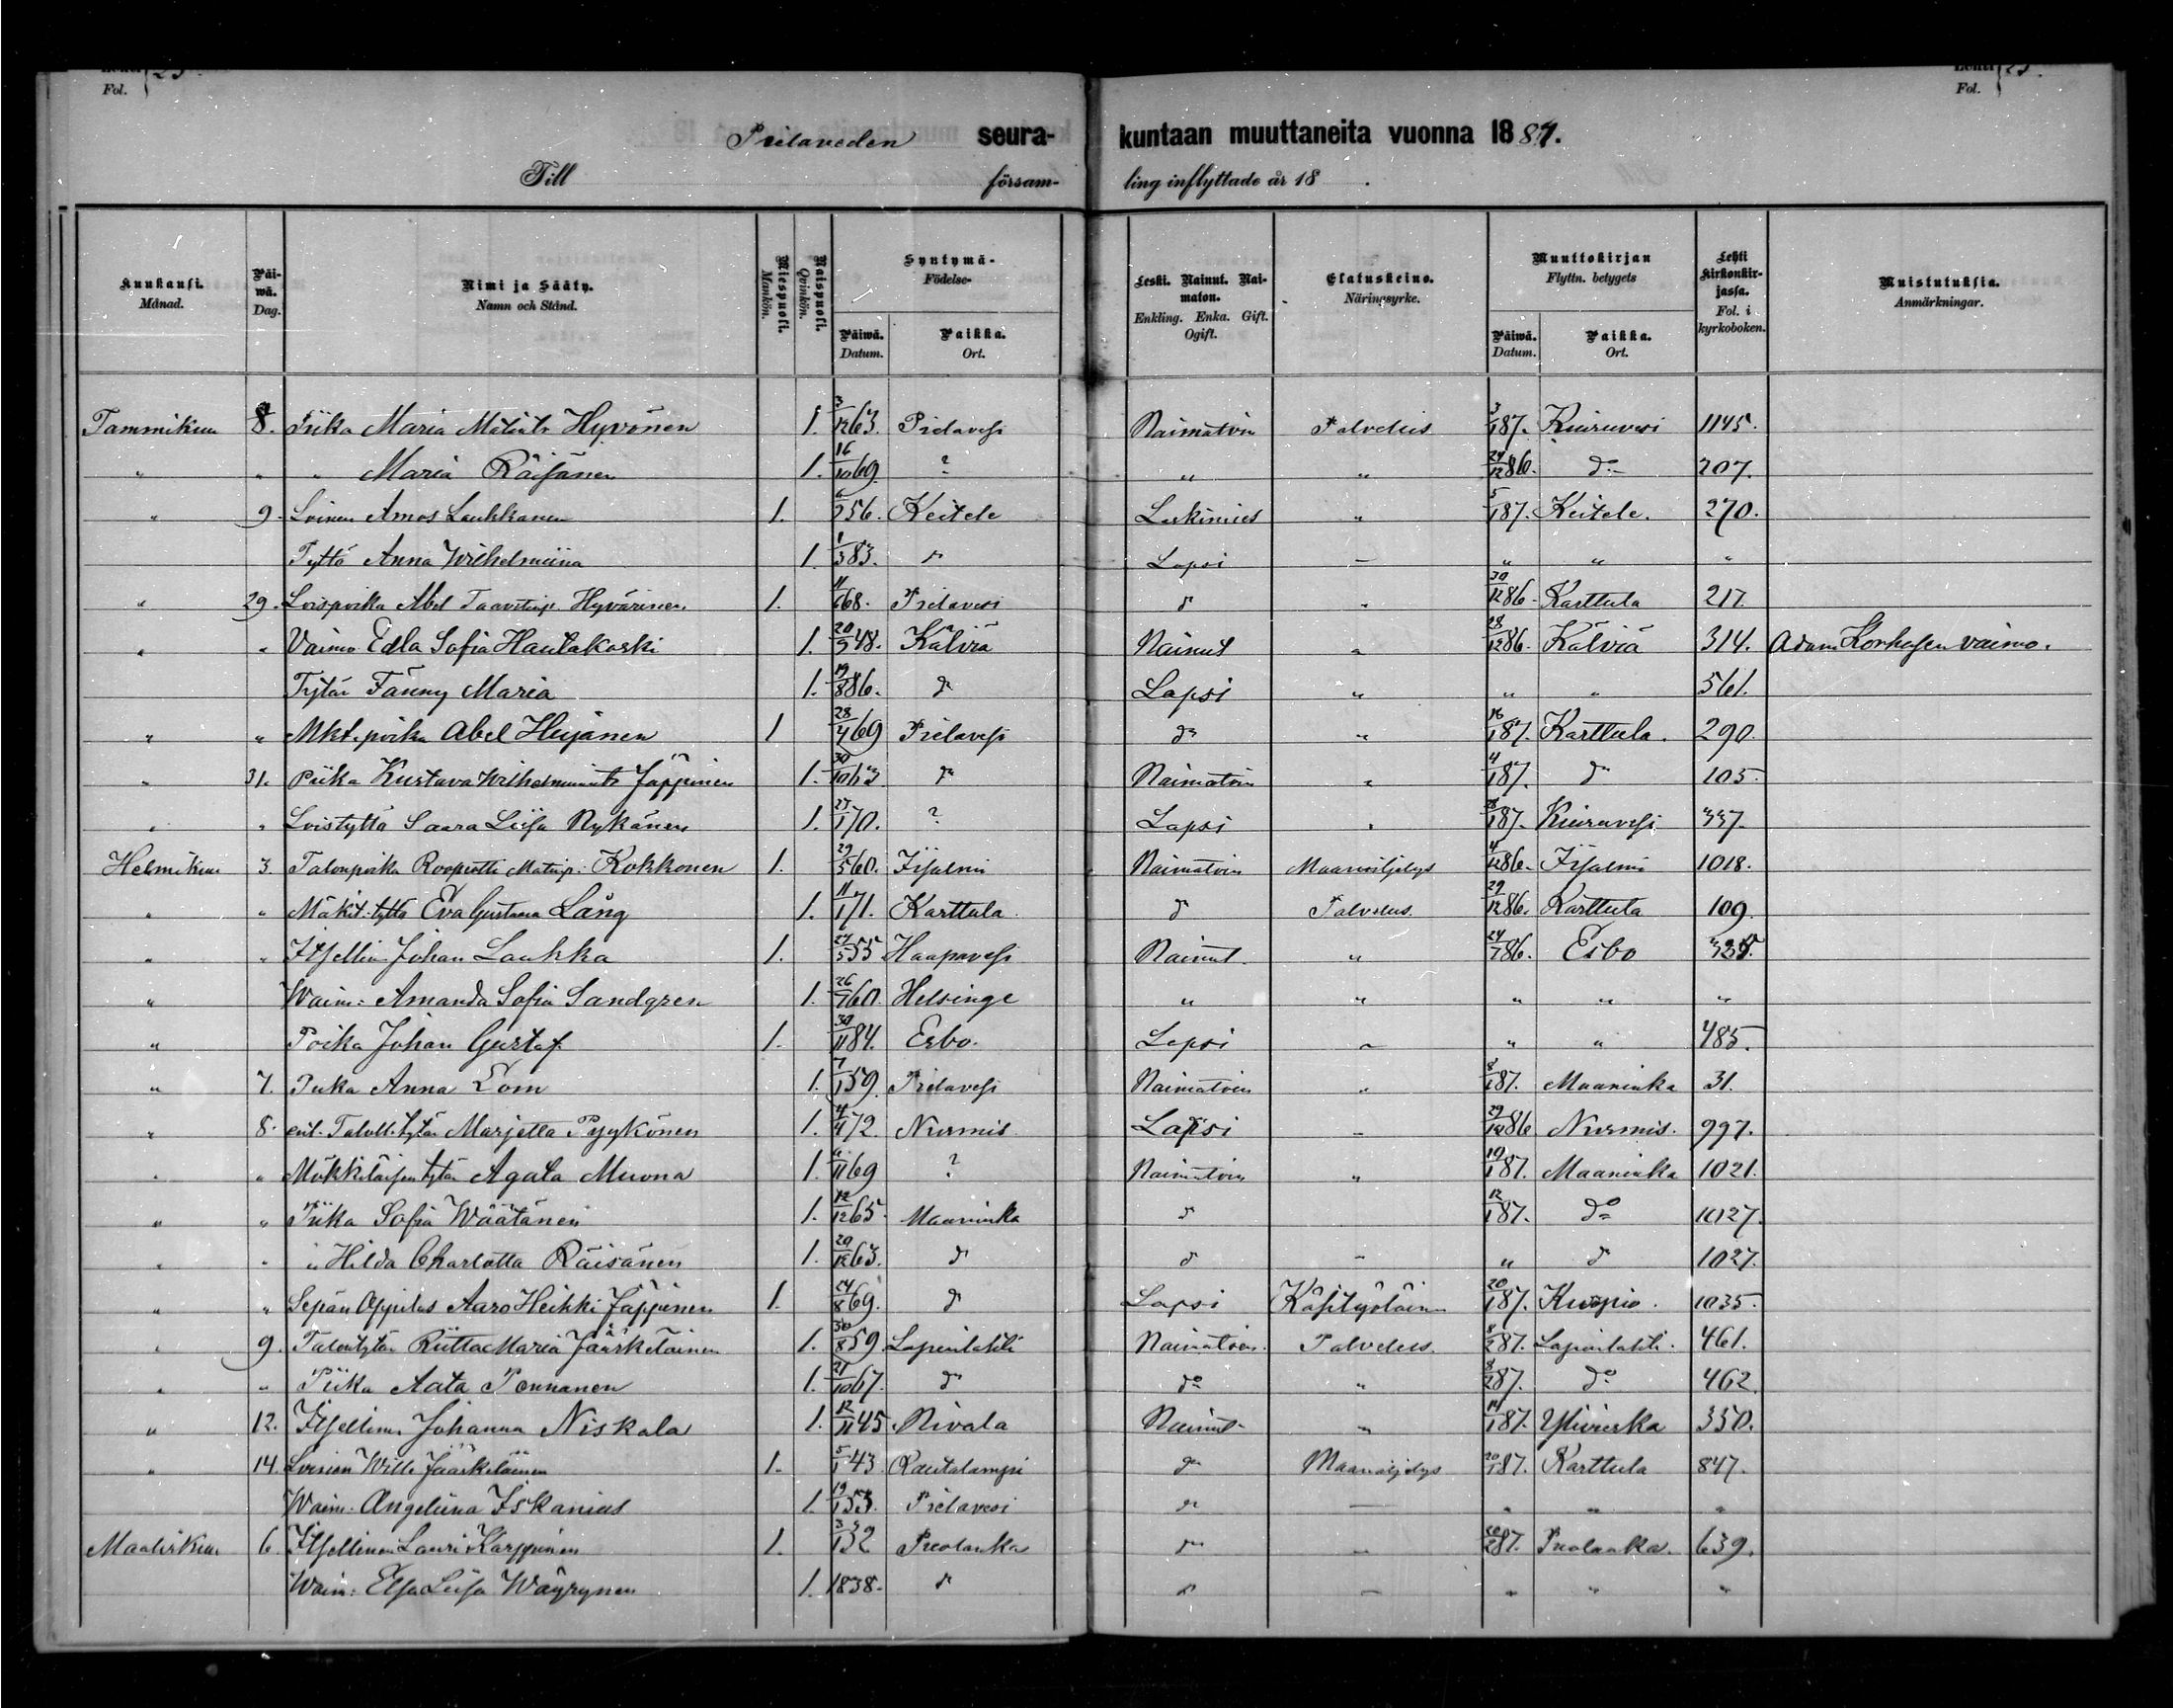 Fol. 25. Fol. 25.
Pielaveden seura- kuntaan muuttaneita vuonna 1887.
Till försam- ling inflyttade år 18 .
Kuukausi. Månad. Päiwä. Dag. Nimi ja Sääty. Namn och Stånd. Miespuoli. Mankön. Naispuoli. Qvinkön. Syntymä- Födelse- Päiwä. Datum. Paikka. Ort. Leski. Nainut. Naimaton. Enkling. Enka. Gift. Ogift. Elatuskeino. Näringsyrke. Muuttokirjan Flyttn. betygets Päiwä. Datum. Paikka. Ort. Lehti kirkonkirjassa. Fol. i kyrkoboken. Muistutuksia. Anmärkningar.
Tammikuu 8. Piika Maria Matintr Hyvönen 1. 3/12 63. Pielavesi Naimatoin Palvelus 3/1 87. Kiuruvesi 1145.
" " " Maria Räisänen 1. 16/10 69. ? " " 24/12 86. do 207.
" 9. Loinen Amos Laukkanen 1. 56. Keitele Leskimies " 5/1 87. Keitele. 270.
Tyttö Anna Wilhelmiina 1. 1/3 83. d:o Lapsi — " " "
" 29. Loispoika Abel Taavetinp. Hyvärinen 1. 11/6 68. Pielavesi d:o " 30/12 86. Karttula 217.
" " Vaimo Edla Sofia Hautakoski 1. 20/9 48. Kälviä Nainut " 28/12 86. Kälviä 314. Adam Korhosen vaimo.
Tytär Fanny Maria 1. 19/8 86. d:o Lapsi " " " 561.
" " Mkt. poika Abel Heijänen 1 28/4 69 Pielavesi d:o " 16/1 87. Karttula. 290.
" 31. Piika Kustava Wilhelmiinantr Jäppinen 1. 30/10 63. d:o Naimatoin " 4/1 87. d:o 105.
" " Loistyttö Saara Liisa Nykänen 1. 27/1 70. ? Lapsi " 87. Kiuruvesi 337.
Helmikuu 3. Talonpoika Roopertti Matinp. Kokkonen 1. 29/5 60. Iisalmi Naimatoin Maanviljelys 4/12 86. Iisalmi 1018.
" " Mäkit. tyttö Eva Gustava Lång 1. 11/1 71. Karttula d:o Palvelus. 29/12 86. Karttula 109.
" " Itsellinen Johan Laukka 1. 24/5 55 Haapavesi Nainut. " 24/7 86. Esbo 325.
" Waimo: Amanda Sofia Sandgren 1. 26/7 60. Helsinge " " " " "
" Poika Johan Gustaf 1. 30/11 84. Esbo. Lapsi " " " 485.
" 7. Piika Anna Lom 1. 7/1 59. Pielavesi Naimatoin " 8/1 87. Maaninka 31.
" 8. ent. Taloll. tytär Marjetta Pyykönen 1. 4/4 72. Nurmis Lapsi — 29/12 86 Nurmis. 997.
" " Mökkiläisen tytär Agata Muona 1. 11 69 ? Naimatoin " 19/1 87. Maaninka 1021.
" " Piika Sofia Wäätänen 1. 12/12 65. Maaninka d:o 12/1 87. do 1027.
" " " Hilda Charlotta Räisänen 1. 20/12 63. d:o d:o — " d:o 1027.
" " Sepän Oppilas Aaro Heikki Jäppinen 1. 24/8 69. d:o Lapsi Käsityöläin 20/1 87. Kuopio. 1035.
" 9. Talontytär Riitta Maria Jääskeläinen 1. 30/8 59 Lapinlahti Naimatoin. Palvelus. 8/2 87. Lapinlahti. 461.
" " Piika Aata Pennanen 1. 21/10 67. d:o do " 8/2 87. do 462
" 12. Itsellinen Johanna Niskala 1. 12/11 45. Nivala Nainut " 14/1 87. Ylivieska 350.
" 14. Loisian Wille Jääskeläinen 1. 5/1 43. Rautalampi d:o Maanviljelys 20/1 87. Karttula 847.
Waimo. Angeliina Iskanius 1. 19/1 53. Pielavesi d:o — " " "
Maaliskuu 6. Itsellinen Lauri Karppinen 1. 3/1 32 Puolanka d:o — 20/2 87. Puolanka. 639.
Waim: Elsa Liisa Wäyrynen 1. 1838. d:o d:o — " " "